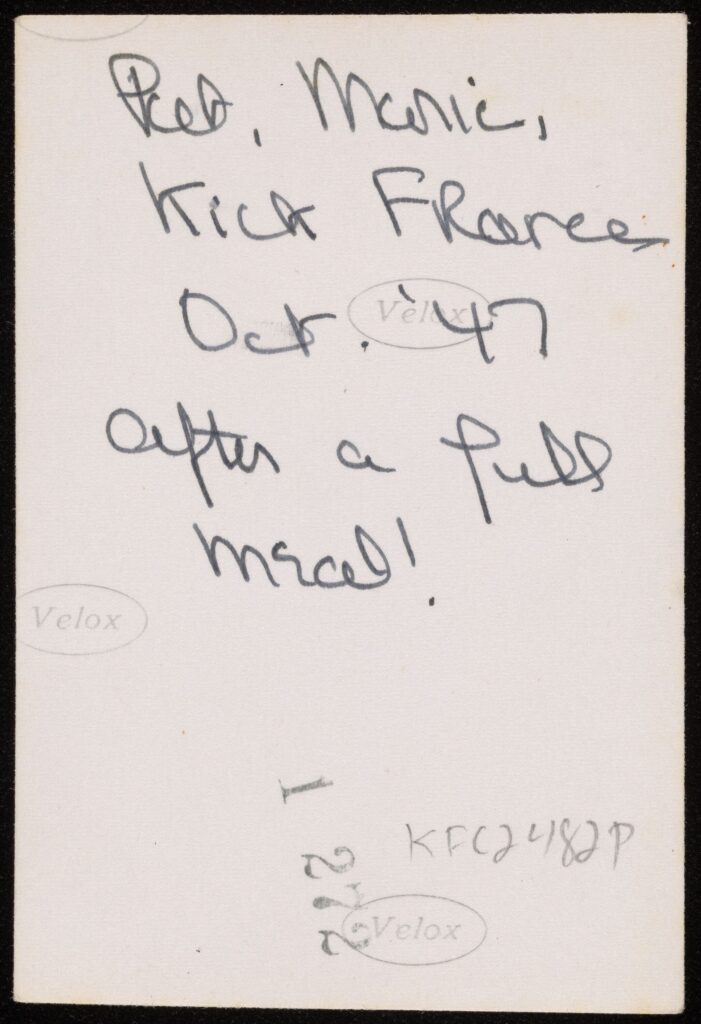 Pat, Marie,
Kick France
Oct. '47
Velox
after a full
meal!
Velox
1 272
KFC2482P
Velox